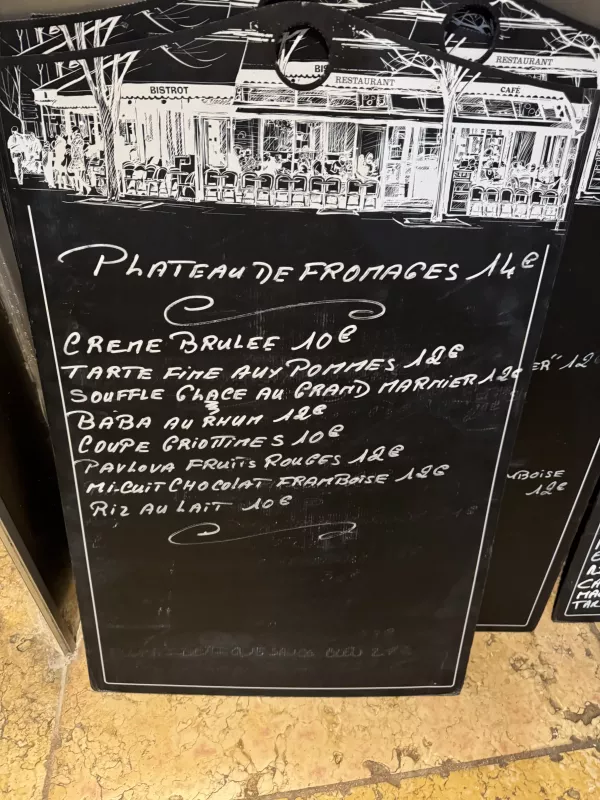 BISTROT
BIS
RESTAURANT
CAFÉ
RESTAURANT
PLATEAU DE FROMAGES 14€
CREME BRULEE 10€
TARTE FINE AUX POMMES 12€
SOUFFLE GLACE AU GRAND MARNIER 12€
BABA AU RHUM 12€
COUPE GRIOTTINES 10€
PAVLOVA FRUITS ROUGES 12€
MI-CUIT CHOCOLAT FRAMBOISE 12€
RIZ AU LAIT 10€
ER" 12€
MBOISE
12€
CA
MA
TAR